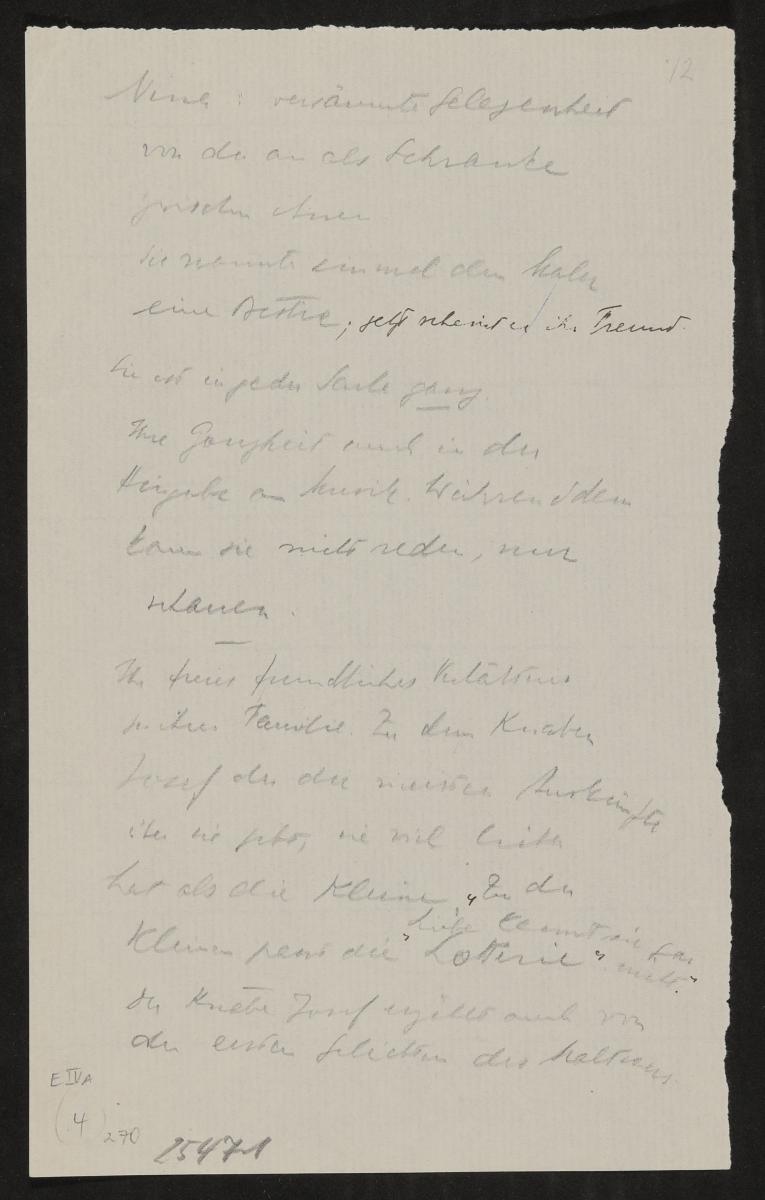 12
: versäumte Gelegenheit
von da an als Schranke
zwischen ihnen
Sie nannte einmal den Maler
eine ; jetzt scheint er ihr Freund.
Sie ist in jeder ganz.
Ihre Ganzheit auch in der
Hingabe an Musik. Während dem
kann sie nicht reden, nur
schauen.
Ihr freies freundliches Verhältnis
zu ihrer Familie. Zu dem Knaben
Josef der die meisten Auskünfte
über sie gibt, sie viel lieber
hat als die Kleine. „Zu der
"Liebe kennt sie gar nicht."
Kleinen passt die "Lotterie"
Der Knabe Josef erzählt auch von
den ersten des
E IV A
(4) 270
25471